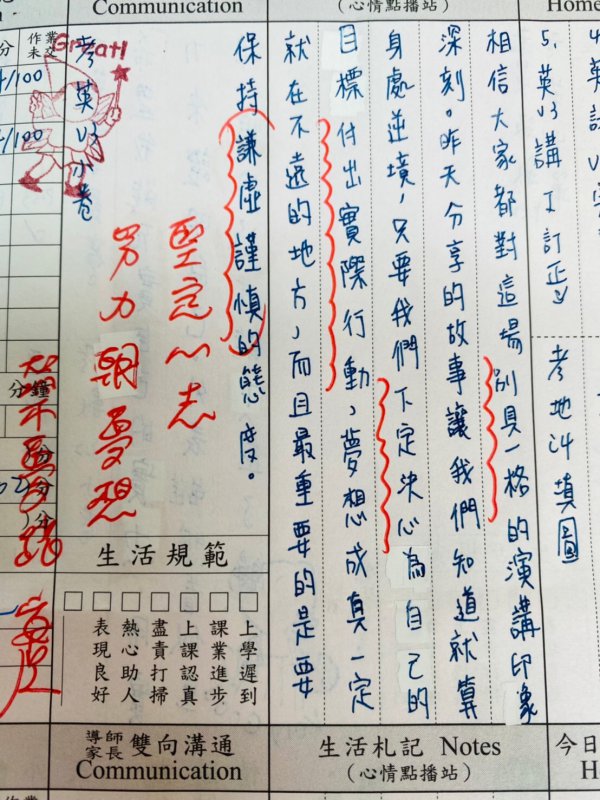 Communication
(心情點播站)
Home
5. 英V3講 I 訂正
考地 ch4 填圖
相信大家都對這場別具一格的演講印象
深刻。昨天分享的故事讓我們知道就算
身處逆境，只要我們下定決心為自己的
目標付出實際行動，夢想成真一定
就在不遠的地方，而且最重要的是要
保持謙虛謹慎的態度。
堅定心志
努力朝夢想
Great!
考英V3小卷
作業未交
分
/100
/100
分鐘
分
分
分
生活規範
上學遲到
課業進步
上課認真
盡責打掃
熱心助人
表現良好
導師家長 雙向溝通
Communication
生活札記 Notes
(心情點播站)
今日
H
作業